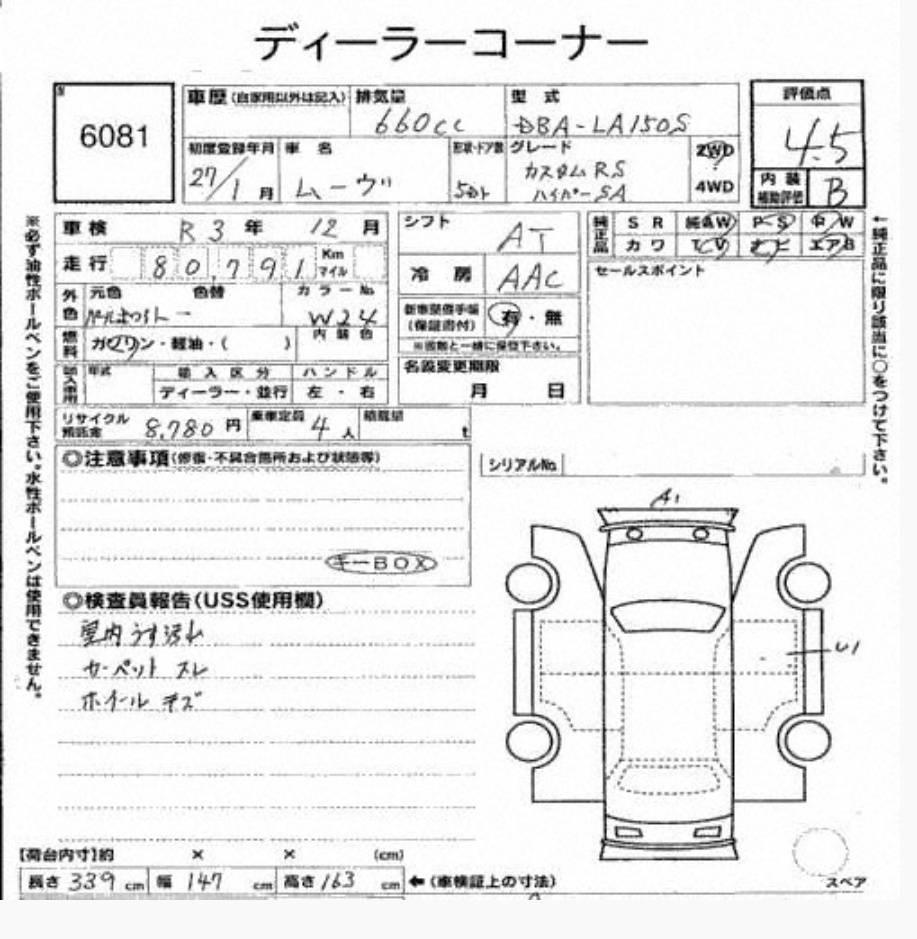 ディーラーコーナー
6081
車歴 (自家用以外は記入)
排気量 660cc
型式 DBA-LA150S
評価点 4.5
初度登録年月 27/1月
車名 ムーヴ
形状・ドア数 5
グレード カスタムRS ハイパーSA
2WD
4WD
内装補助評価 B
車検 R3年 12月
シフト AT
純正品 SR 純AW PS PW
カワ TV ナビ エアB
走行 80,791 Km マイル
冷房 AAC
セールスポイント
外色 元色 色替 カラーNo. W24
新車整備手帳(保証書付) 有・無
燃料 ガソリン・軽油・( ) 内装色
輸入車用 年式 輸入区分 ハンドル
ディーラー・並行 左・右
名義変更期限 月 日
リサイクル預託金 8,780円 乗車定員 4人 積載量 t
◎注意事項(修復・不具合箇所および状態等)
シリアルNo.
キーBOX
A1
◎検査員報告(USS使用欄)
室内うす汚れ
カーペット スレ
ホイール キズ
U1
【荷台内寸】約 × × (cm)
長さ 339 cm 幅 147 cm 高さ 163 cm ←(車検証上の寸法)
スペア
※必ず油性ボールペンをご使用下さい。水性ボールペンは使用できません。
←純正品に限り該当に○をつけて下さい。